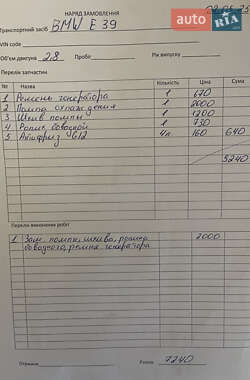 НАРЯД ЗАМОВЛЕННЯ
AUTO RIA .com
Транспортний засіб BMW E 39
VIN code
Об'єм двигуна 2.8 Пробіг Рік випуску
Перелік запчастин
№ Назва Кількість Ціна Сума
1 Ремень генератора 1 670
2 Помпа охлаждения 1 2000
3 Шкив помпы 1 1200
4 Ролик обводной 1 730
5 Антифриз G12 4л 160 640
5240
Перелік виконання робіт
1 Зам. помпы, шкива, ролика 2000
обводного, ремня генератора
Отримав Разом 7240